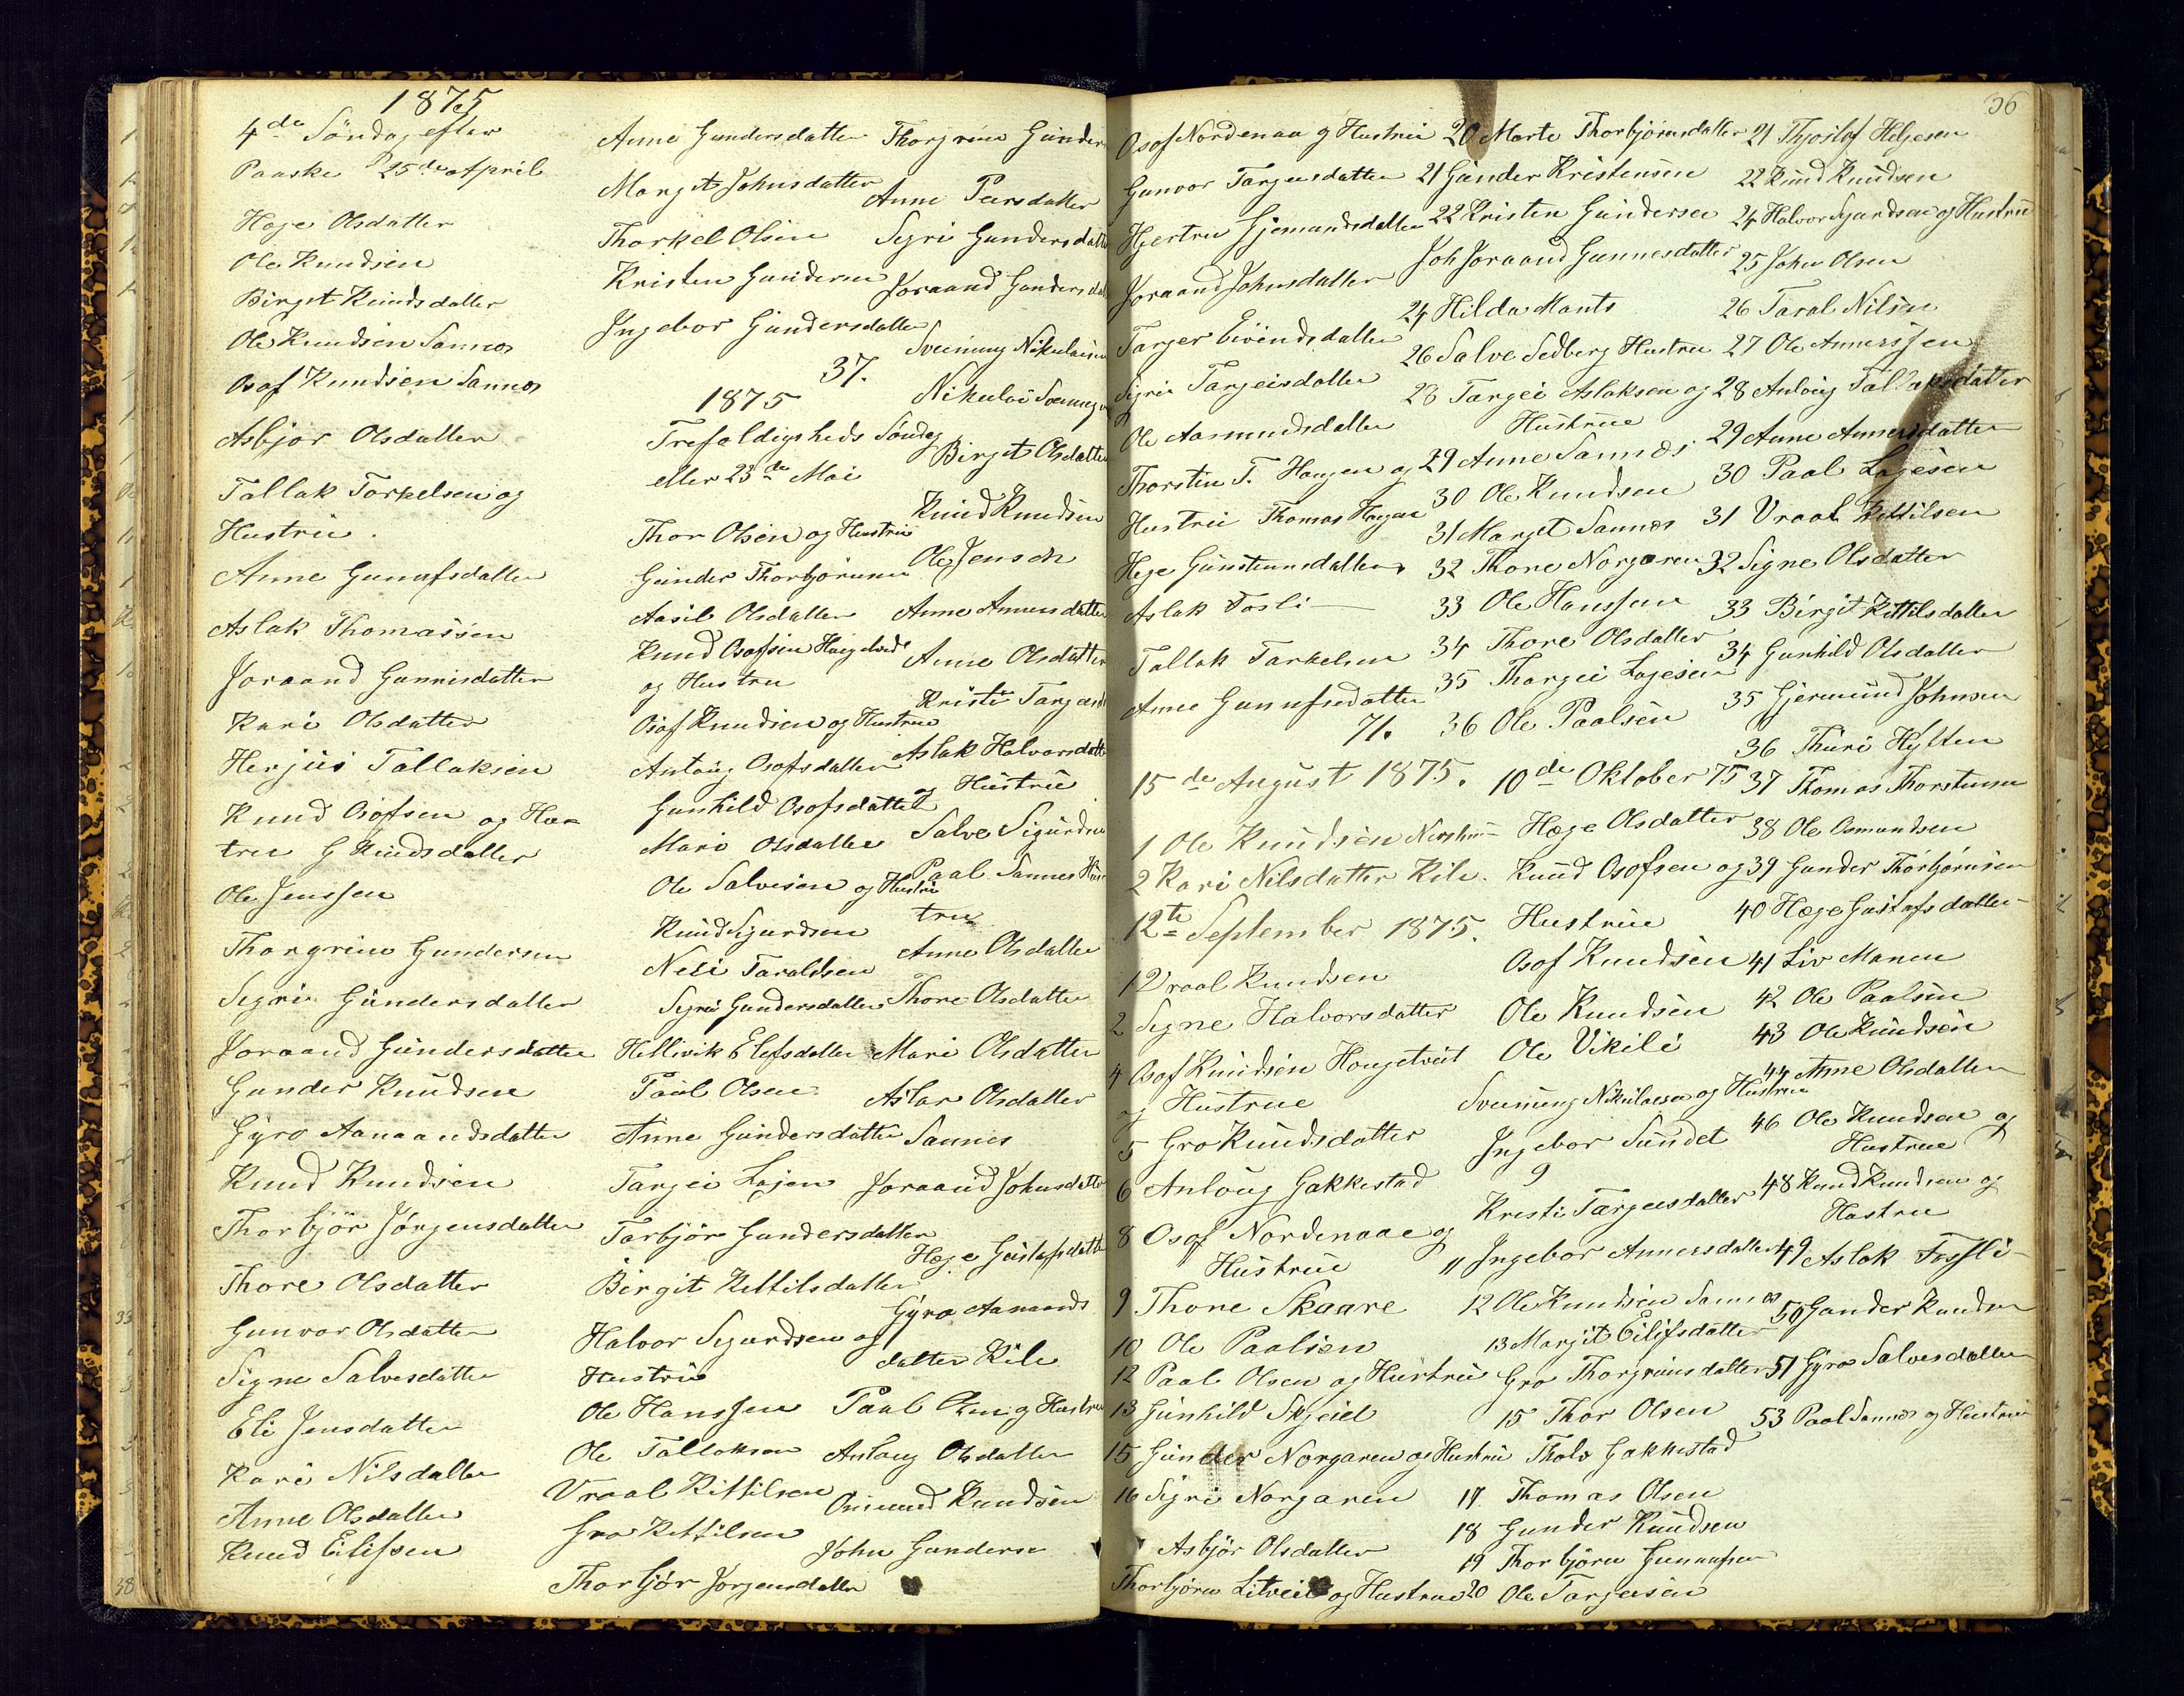 1875
4de Söndag efter
Paaske 25de April
Hæge Olsdatter
Ole Knudsen
Birgit Knudsdatter
Ole Knudsen Sannes
Osof Knudsen Sannes
Asbjør Olsdatter
Tallak Torkelsen og
Hustrue.
Anne Gunufsdatter
Aslak Thomassen
Joraand Gunnisdatter
Kari Olsdatter
Herjus Tallaksen
Knud Osofsen og Hus
true G Knudsdatter
Ole Jenssen
Thorgrim Gundersen
Segri Gundersdatter
Joraand Gundersdatter
Gunder Knudsen
Gyro Aanaandsdatter
Knud Knudsen
Thorbjör Jörgensdatter
Thore Olsdatter
Gunvor Olsdatter
Signe Salvesdatter
Eli Jensdatter
Kari Nilsdatter
Anne Olsdatter
Knud Eilifsen
Anne Gundersdatter
Margit Johnsdatter
Thorkel Olsen
Kristen Gundersen
Ingebor Gundersdatter
37.
1875
Trefoldigsheds Söndag
eller 23de Mai
Thor Olsen og Hustrue
Gunder Thorbjørnsen
Aasil Olsdatter
Knud Osofsen Haugetvedt
og Hustrue
Osof Knudsen og Hustrue
Anlaug Osofsdatter
Gunhild Osofsdatter
Mari Olsdatter
Ole Salvesen og Hustrue
Knud Sjurdsen
Neri Taraldsen
Segri Gundersdatter
Hellevik Elefsdatter
Paul Olsen
Anne Gundersdatter
Targei Lajesen
Torbjör Gundersdatter
Birgit Kettilsdatter
Halvor Segurdsen og
Hustrue
Ole Hanssen
Ole Tallaksen
Vraal Kittilsen
Gro Kettilsen
Thorbjör Jorgensdatter
Thorgrim Gunder
Anne Pearsdatter
Segri Gundersdatter
Joraand Gundersdat
Sveinung Nikulaisen
Nikulai Sveinung
Birgit Olsdatter
Knud Knudsen
Ole Jensen
Anne Annersdatter
Anne Olsdatter
Kristi Targeisd
Aslak Halvorsdatt
og Hustrue
Salve Sigurdsen
Paal Sannes Hus
true
Anne Olsdatter
Thore Olsdatter
Mari Olsdatter
Aslar Olsdatter
Sannes
Joraand Johnsdatter
Hæge Gustafsdatter
Gyro Aanaands
datter Kile
Paal Olsen og Hustrue
Anlaug Olsdatter
Osmund Knudsen
John Gundersen
36
Osof Nordenaa og Hustrue
Gunvor Targeisdatter
Hjertru Gjermundsdatter
Joraand Johnsdatter
Targer Eivindsdatter
Sigri Targeisdatter
Ole Aasmundsdatter
Thorstin T. Haugen og
Hustrue Thomas Haugen
Hege Gunsteinsdatter
Aslak Fosli
Tallak Tarkelsen
Anne Gunufsdatter
71.
15de August 1875.
1 Ole Knudsen
2 Kari Nilsdatter Kile.
12te September 1875.
1 Vraal Knudsen
2 Segne Halvorsdatter
4 Osof Knudsen Hougetveit
og Hustrue
5 Gro Knudsdatter
6 Anloug Gakkestad
8 Osof Nordenaae og
Hustrue
9 Thone Skaare
10 Ole Paalsen
12 Paal Olsen og Hustrue
13 Gunhild Skjeiel
15 Gunder Norgaren og Hustrue
16 Sigri Norgaren
Asbjör Olsdatter
Thorbjörn Litveit og Hustrue
20 Marte Thorbjørnsdatter
21 Gunder Kristensen
22 Kristen Gundersen
Joh Joraand Gunnesdatter
24 Hilda Mants
26 Salve Sedberg Hustrue
28 Targei Aslaksen og
Hustrue
29 Anne Sannes
30 Ole Knudsen
31 Marget Sannes
32 Thone Norgaren
33 Ole Hanssen
34 Thore Olsdatter
35 Thorgei Lajesen
36 Ole Paalsen
10de Oktober 75
Hæge Olsdatter
Knud Osofsen og
Hustrue
Osof Knudsen
Ole Knudsen
Ole Vikile
Sveinung Nikulaisen og Hustrue
Ingebor Sundet
9
Kristi Targeisdatter
11 Ingebor Annersdatter
12 Ole Knudsen Sannes
13 Margit Eilifsdatter
Gro Thorgrimsdatter
15 Thor Olsen
Tholv Gakkestad
17 Thomas Olsen
18 Gunder Knudsen
19 Thorbjörn Gunnufsen
20 Ole Targeisen
21 Thjostof Heljesen
22 Knud Knudsen
24 Halvor Segurdsen og Hustrue
25 John Olsen
26 Taral Nilsen
27 Ole Annerssen
28 Anloug Tallaksdatter
29 Anne Annersdatter
30 Paal Lajesen
31 Vraal Kittilsen
32 Signe Olsdatter
33 Birgit Kittilsdatter
34 Gunhild Olsdatter
35 Gjermund Johnsen
36 Thuri Hylten
37 Thomas Thorstensen
38 Ole Osmundsen
39 Gunder Thorbjørnsen
40 Hæge Gustafsdatter
41 Liv Manen
42 Ole Paalsen
43 Ole Knudsen
44 Anne Olsdatter
46 Ole Knudsen og
Hustrue
48 Knud Knudsen og
Hustru
49 Aslak Fossli
50 Gunder Knudsen
51 Gyro Salvesdatter
53 Paal Sannes og Hustrue